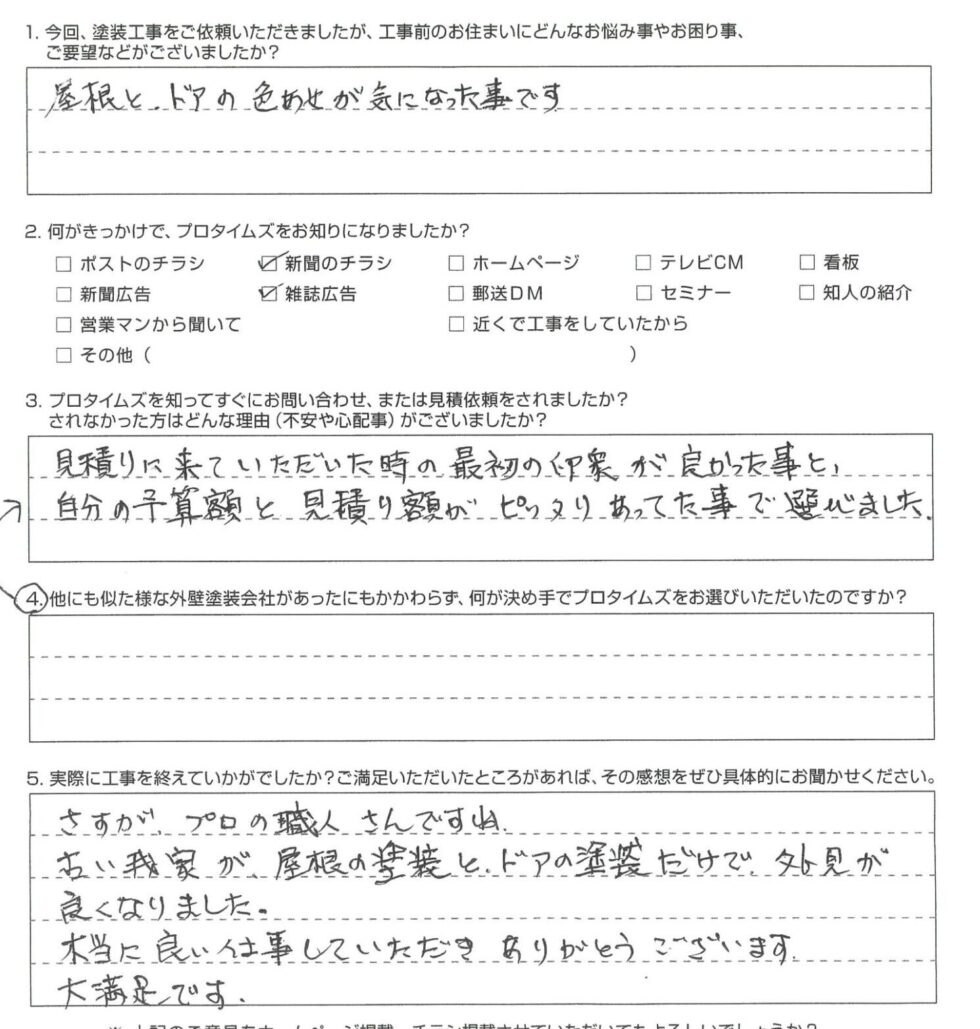 1. 今回、塗装工事をご依頼いただきましたが、工事前のお住まいにどんなお悩み事やお困り事、
ご要望などがございましたか?
屋根と、ドアの色あせが気になった事です
2. 何がきっかけで、プロタイムズをお知りになりましたか?
□ ポストのチラシ ☑ 新聞のチラシ □ ホームページ □ テレビCM □ 看板
□ 新聞広告 ☑ 雑誌広告 □ 郵送DM □ セミナー □ 知人の紹介
□ 営業マンから聞いて □ 近くで工事をしていたから
□ その他( )
3. プロタイムズを知ってすぐにお問い合わせ、または見積依頼をされましたか?
されなかった方はどんな理由(不安や心配事)がございましたか?
見積りに来ていただいた時の最初の印象が良かった事と、
自分の予算額と見積り額がピッタリあってた事で選びました。
4. 他にも似た様な外壁塗装会社があったにもかかわらず、何が決め手でプロタイムズをお選びいただいたのですか?
5. 実際に工事を終えていかがでしたか?ご満足いただいたところがあれば、その感想をぜひ具体的にお聞かせください。
さすが、プロの職人さんですね。
古い我家が、屋根の塗装と、ドアの塗装だけで、外見が
良くなりました。
本当に良い仕事していただきありがとうございます。
大満足です。
※ 上記のご意見をホームページ掲載、チラシ掲載させていただいてもよろしいでしょうか?